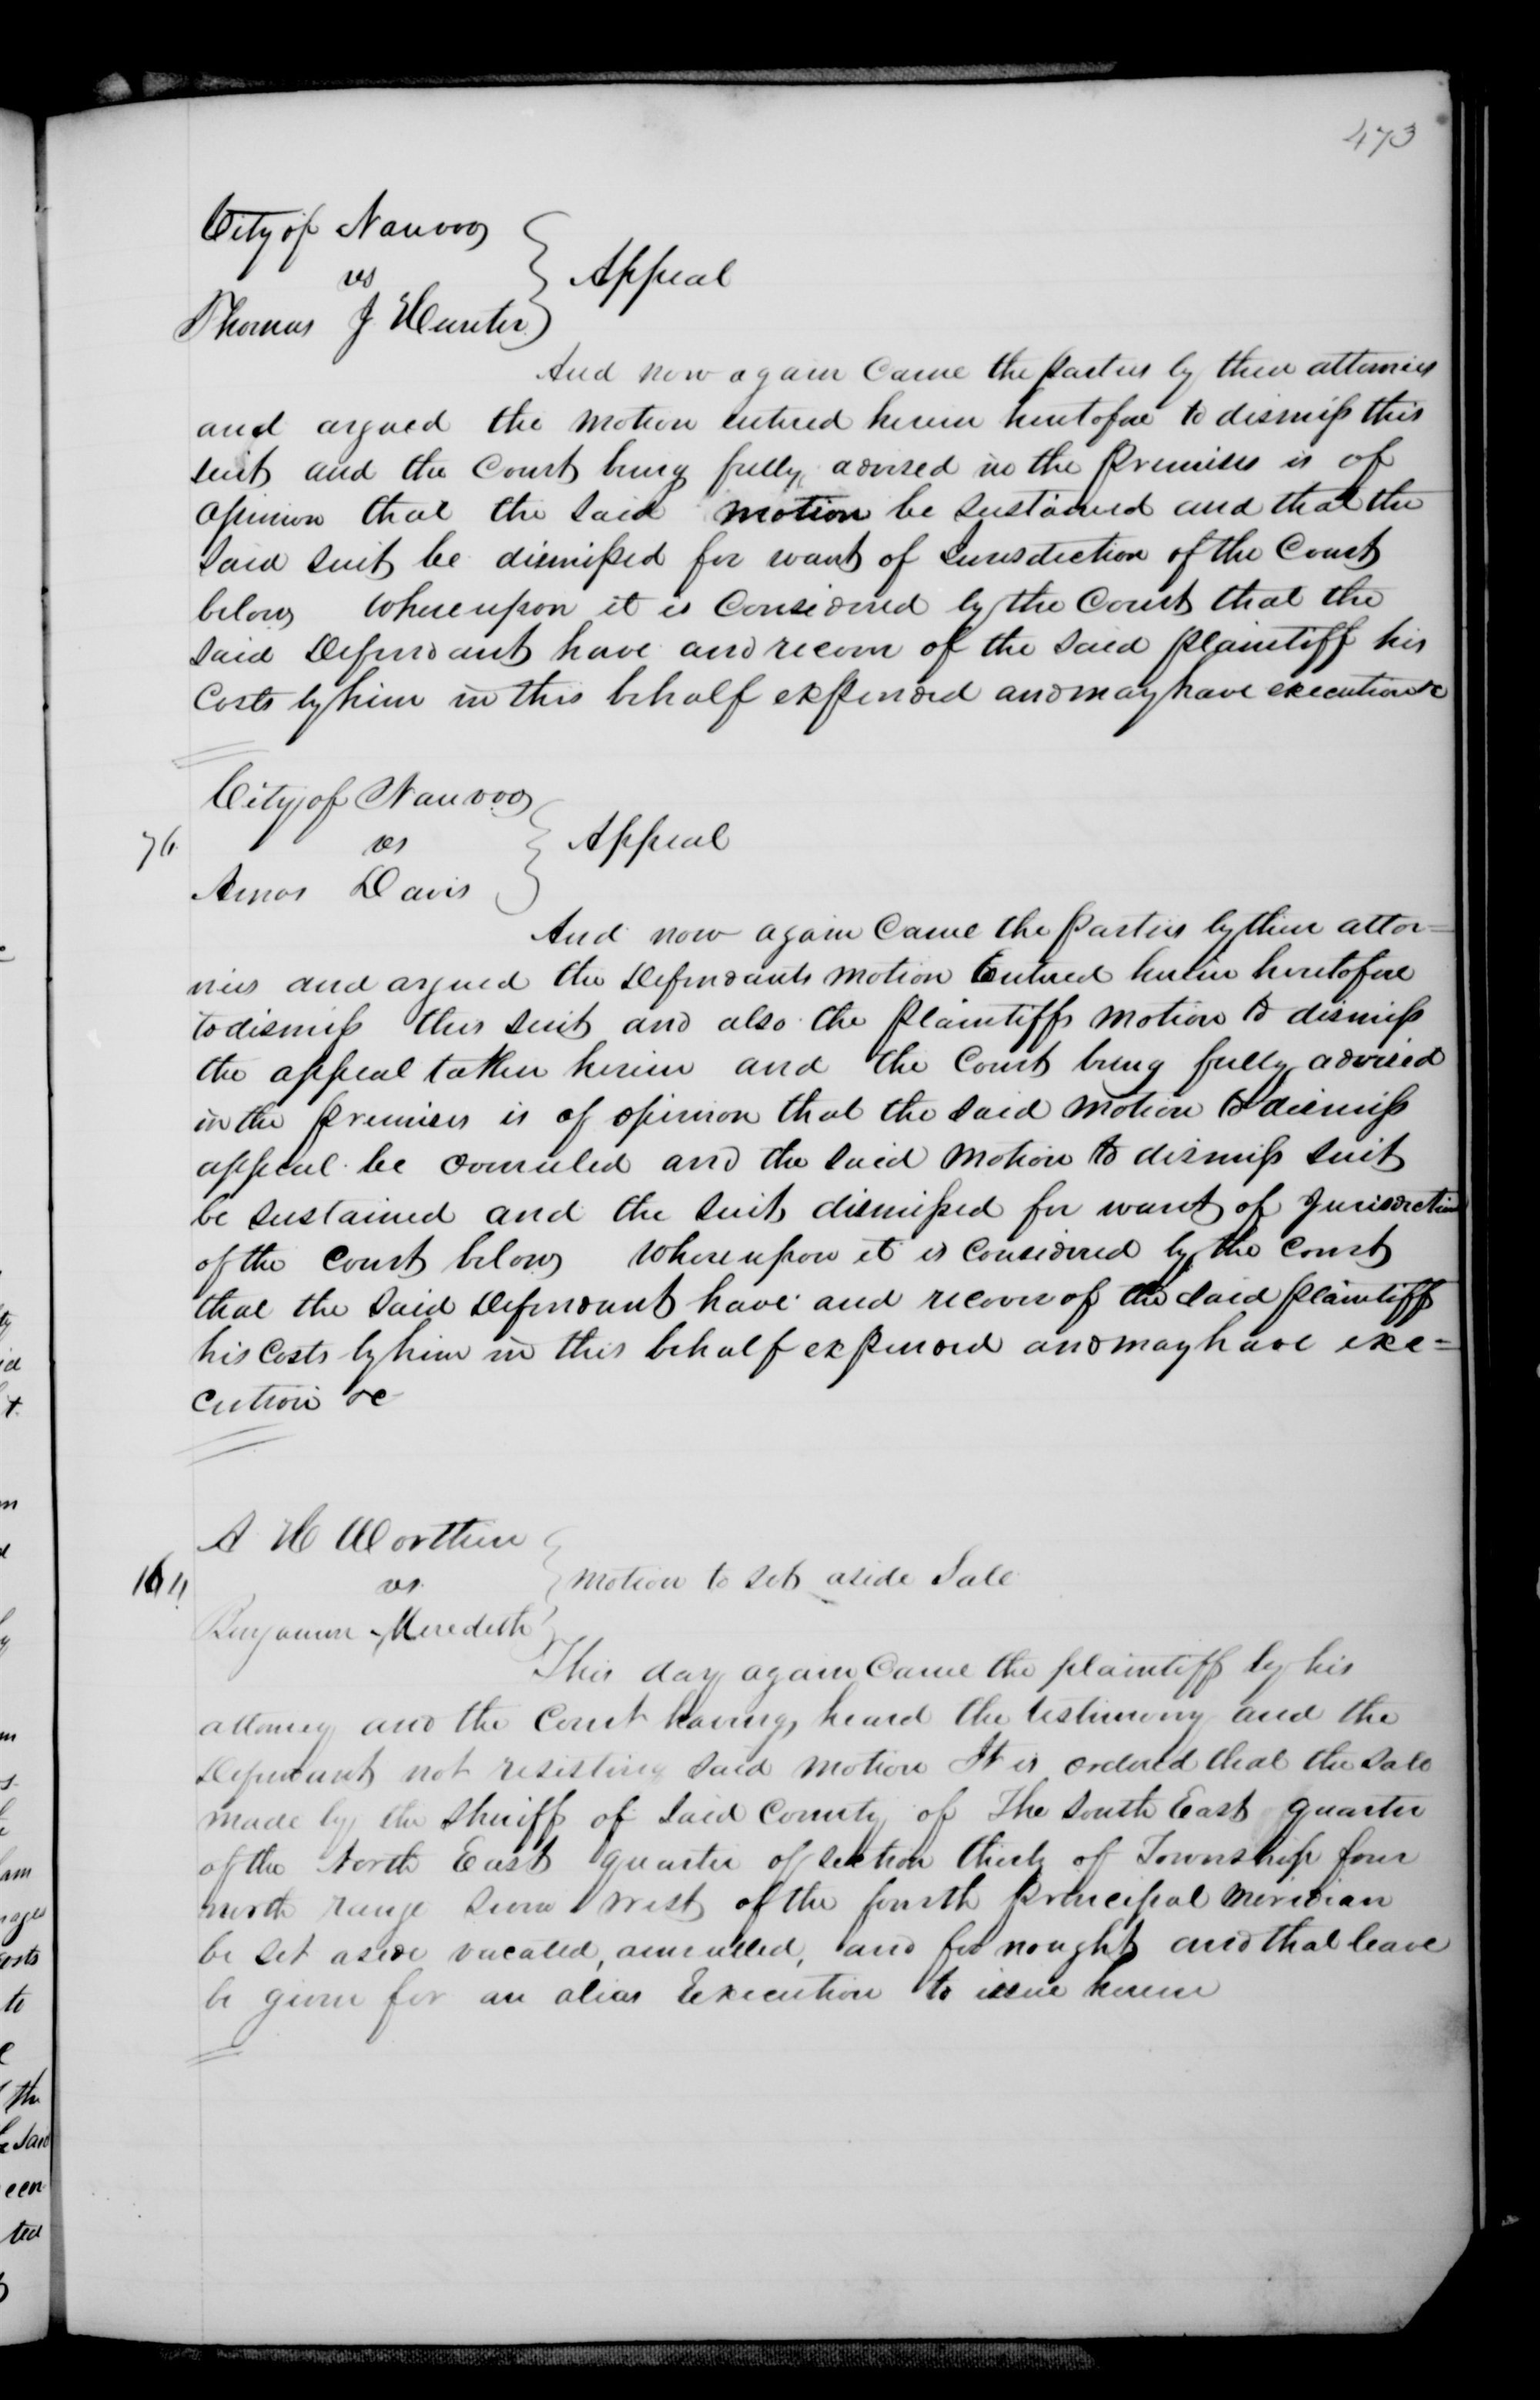 473
City of Nauvoo
vs
Thomas J Hunter
Appeal
And now again Came the parties by their attornies
and argued the motion entered herein heretofore to dismiss this
suit and the Court being fully advised in the premises is of
opinion that the said motion be sustained and that the
said suit be dismissed for want of Jurisdiction of the Court
below Whereupon it is Considered by the Court that the
said Defendant have and recover of the said plaintiff his
Costs by him in this behalf expended and may have execution &c
City of Nauvoo
76
vs
Amos Davis
Appeal
And now again Came the parties by their attor=
nies and argued the Defendants motion Entered herein heretofore
to dismiss this suit and also the plaintiffs motion to dismiss
the appeal taken herein and the Court being fully advised
in the premises is of opinion that the said motion to dismiss
appeal be overruled and the said motion to dismiss suit
be sustained and the suit dismissed for want of Jurisdiction
of the Court below Whereupon it is Considered by the Court
that the said Defendant have and recover of the said plaintiff
his Costs by him in this behalf expended and may have exe=
cution &c
A H Worthen
vs
Benjamin Meredith
motion to set aside Sale
This day again Came the plaintiff by his
attorney and the Court having heard the testimony and the
Defendant not resisting said motion It is ordered that the sale
made by the Sheriff of said County of The South East quarter
of the North East quarter of section thirty of Township four
north range seven west of the fourth principal meridian
be set aside vacated, annulled, and for nought and that leave
be given for an alias Execution to issue herein